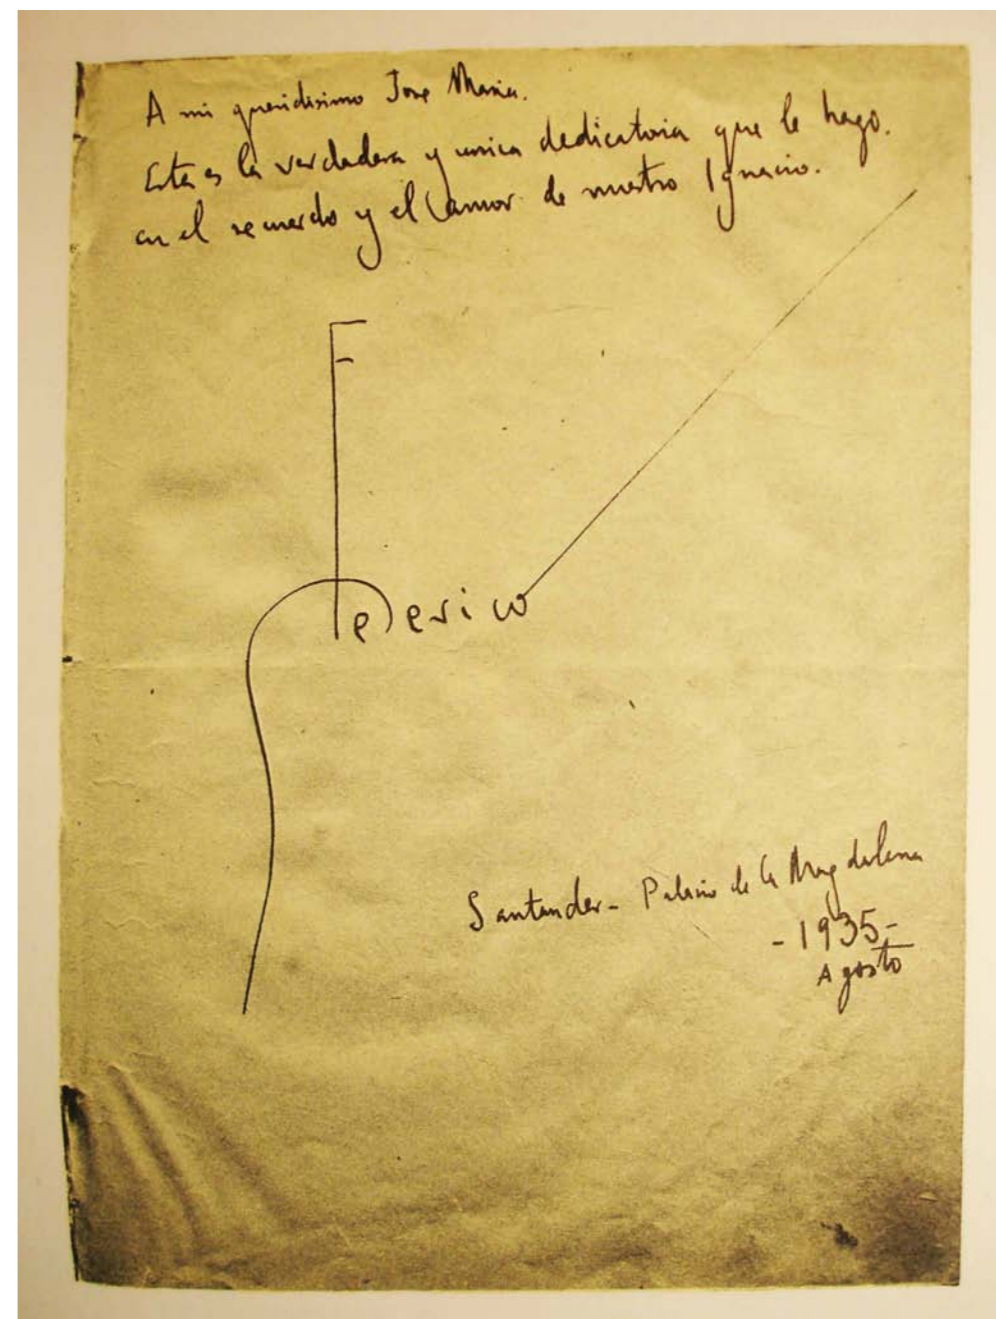 A mi queridisimo Jose Maria.
Esta es la verdadera y unica dedicatoria que le hago.
en el recuerdo y el amor de nuestro Ignacio.
Federico
Santander - Palacio de la Magdalena
- 1935 -
Agosto